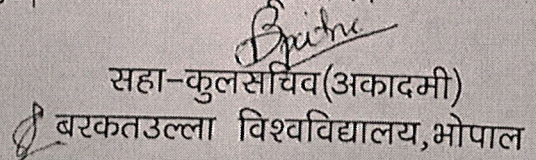 सहा-कुलसचिव(अकादमी)
बरकतउल्ला विश्वविद्यालय,भोपाल